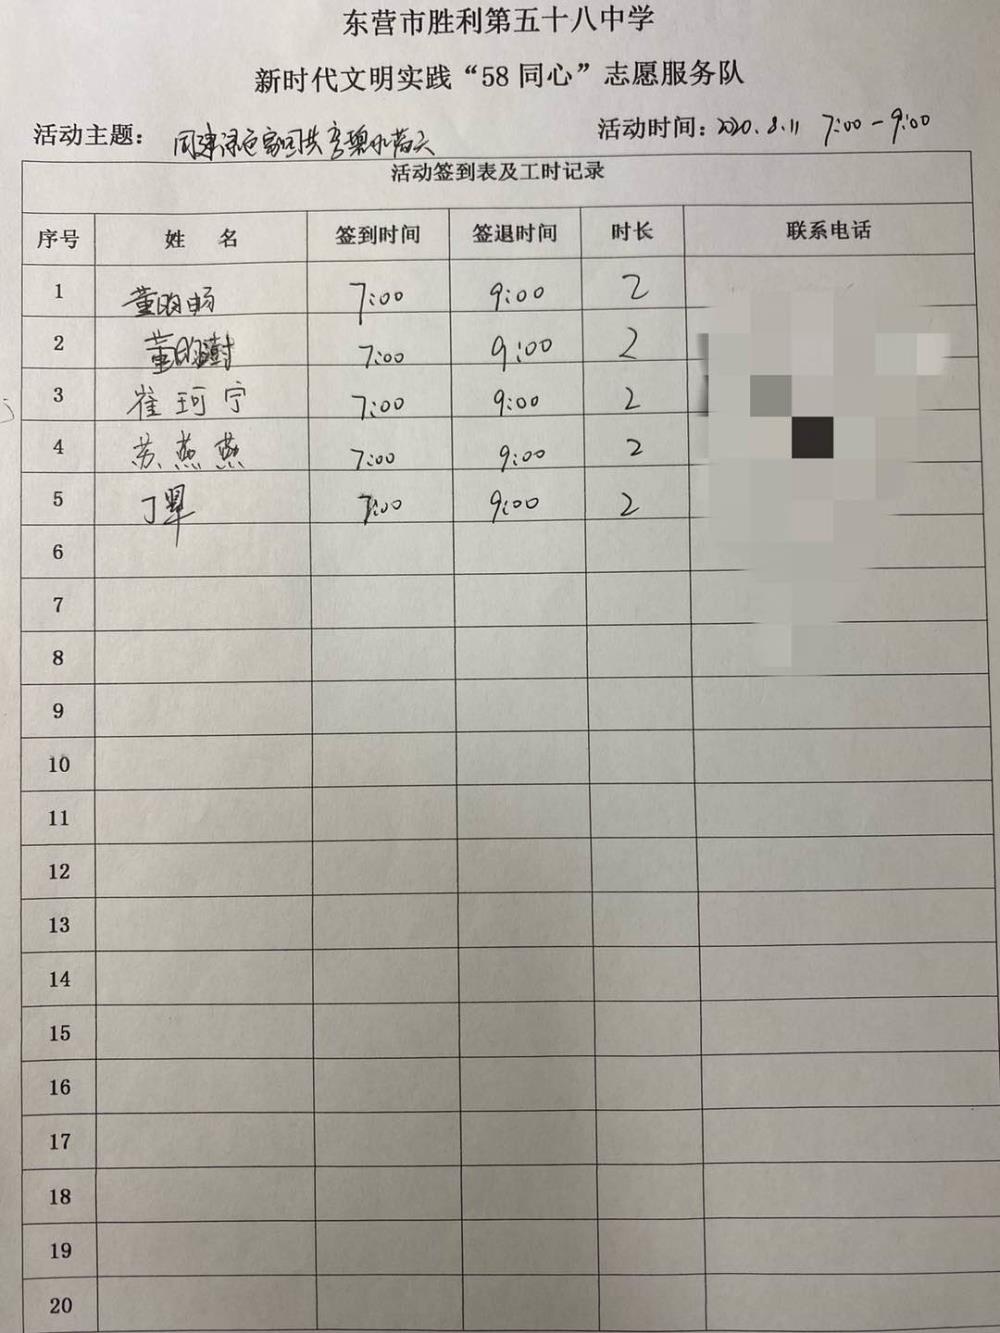 东营市胜利第五十八中学
新时代文明实践“58同心”志愿服务队
活动主题： 同建绿色家园共享碧水蓝天 活动时间：2020.8.11 7:00-9:00
活动签到表及工时记录
序号 姓 名 签到时间 签退时间 时长 联系电话
1 董昀畅 7:00 9:00 2
2 董昀澍 7:00 9:00 2
3 崔珂宁 7:00 9:00 2
4 苏燕燕 7:00 9:00 2
5 丁 7:00 9:00 2
6
7
8
9
10
11
12
13
14
15
16
17
18
19
20